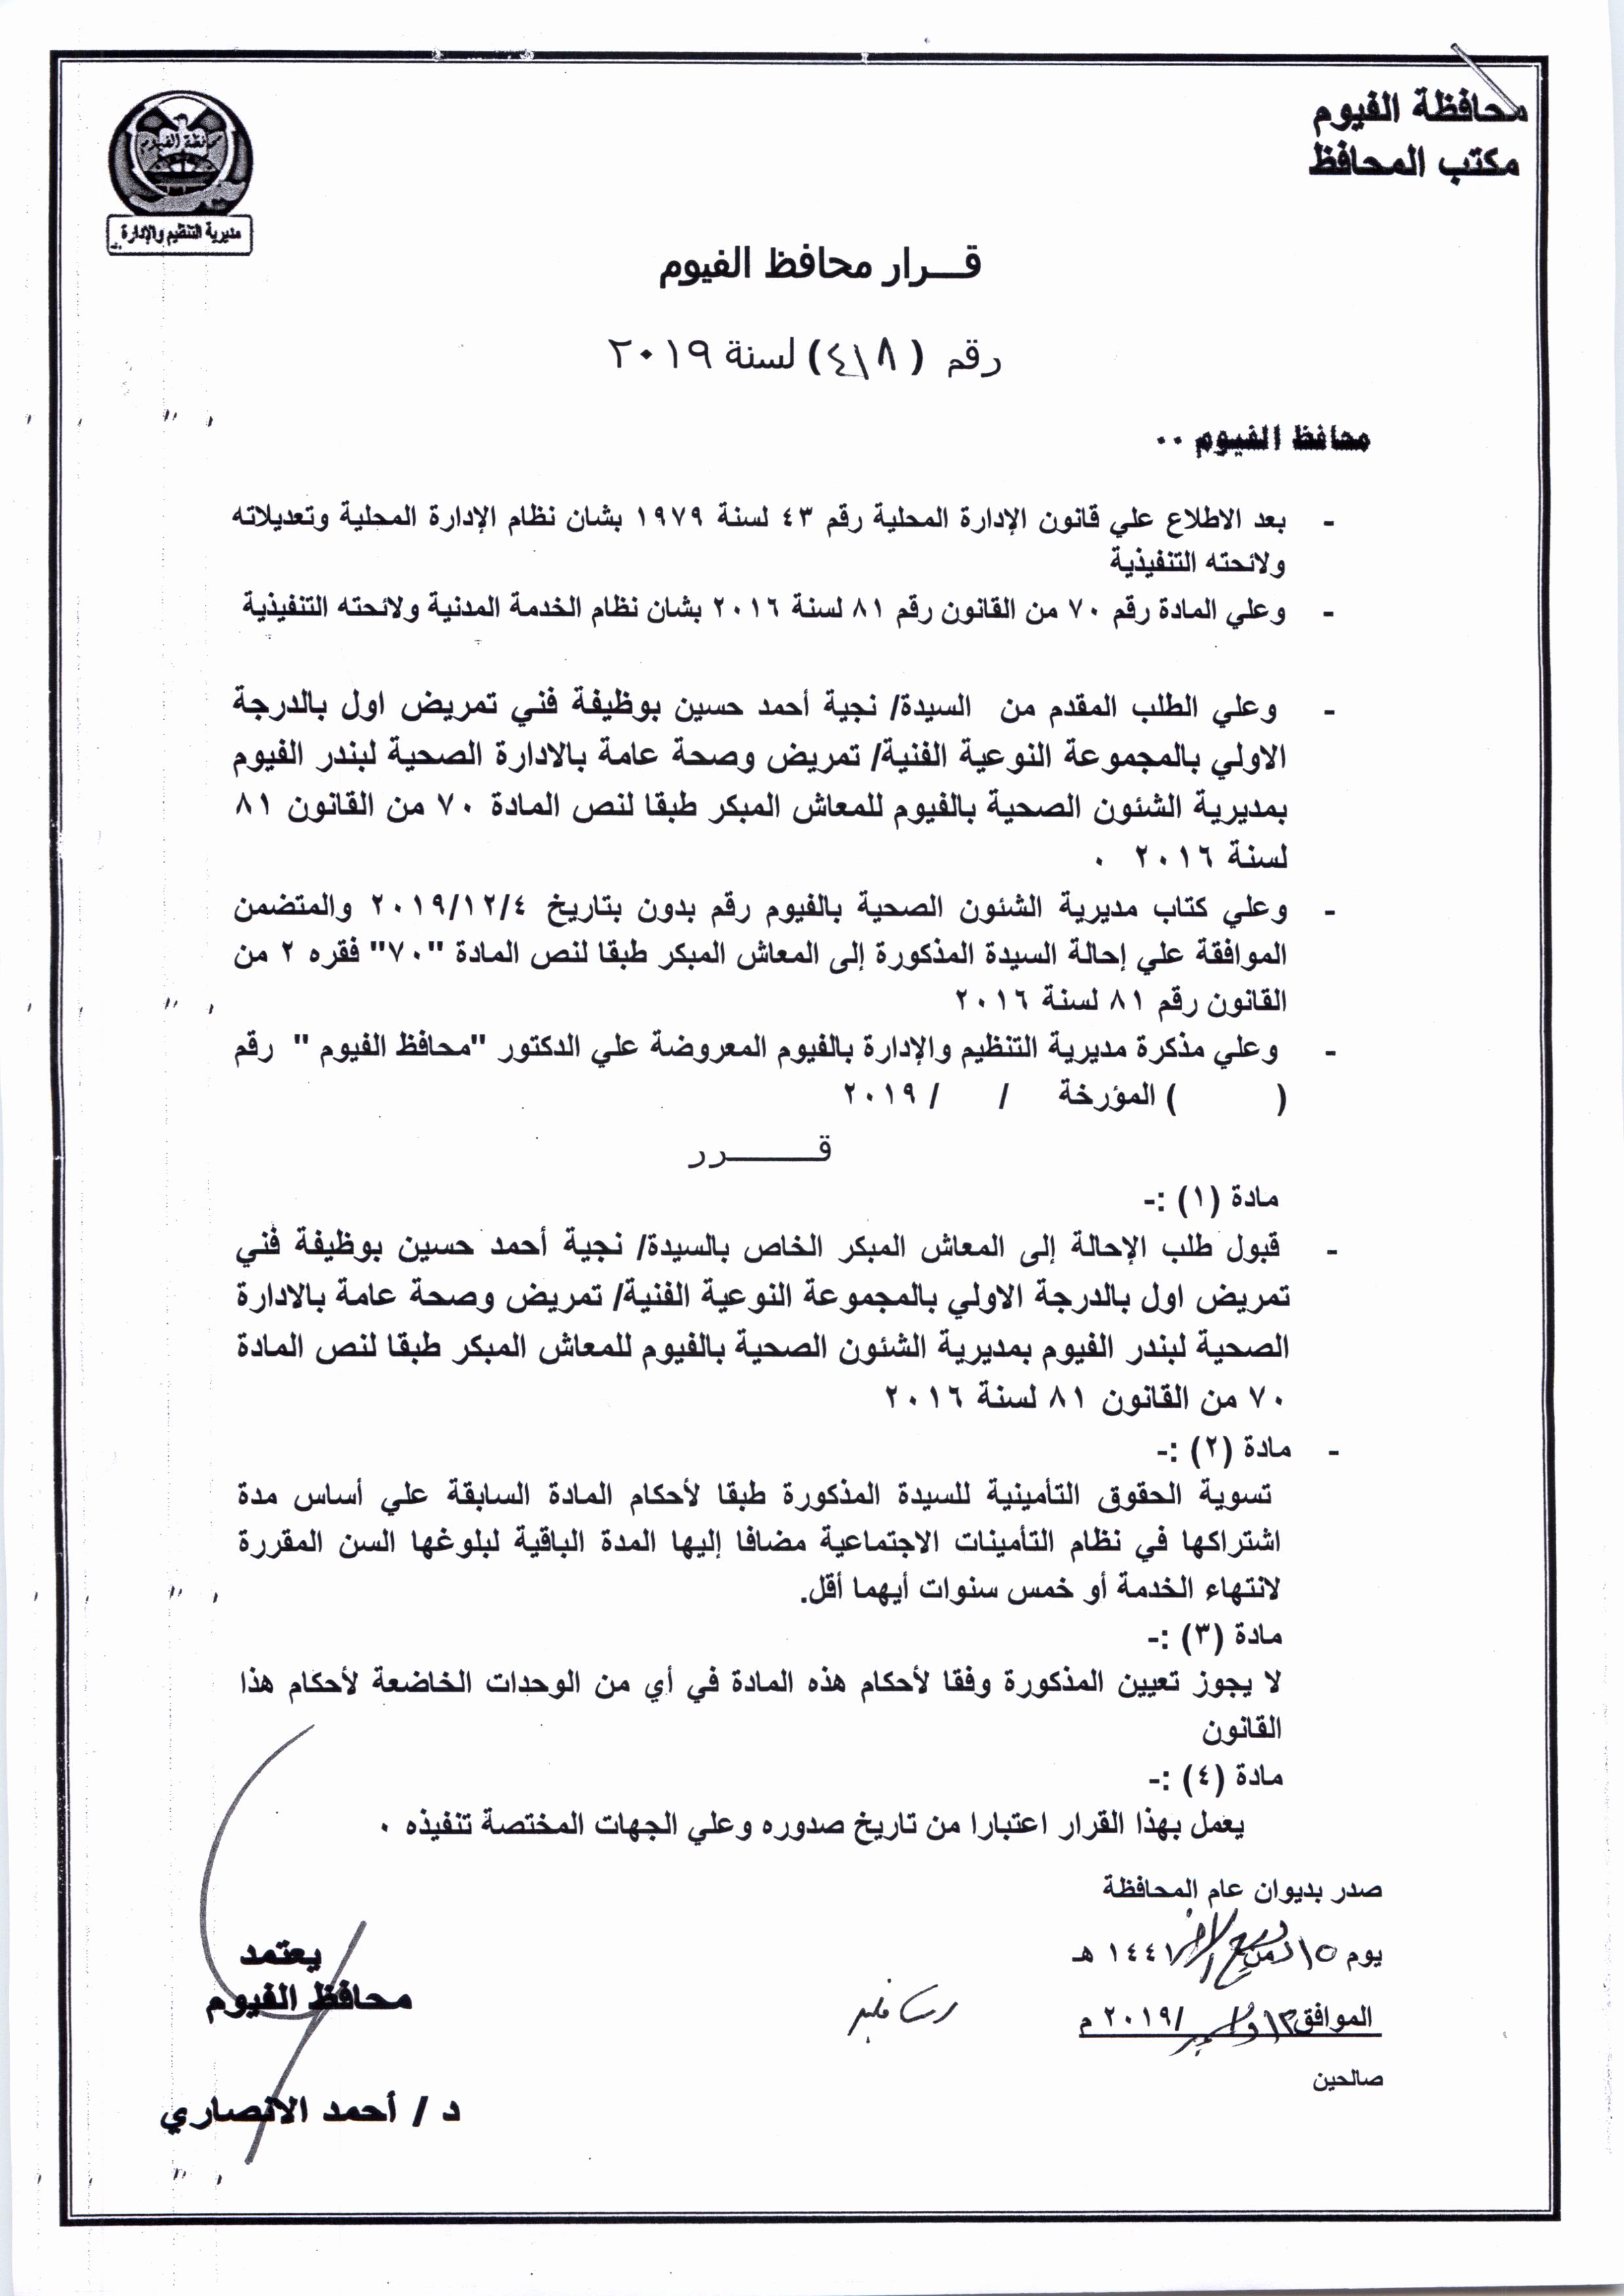 محافظة الفيوم
مكتب المحافظ
محافظة الفيوم
مديرية التنظيم والإدارة
قـــرار محافظ الفيوم
رقم ( ٤١٨ ) لسنة ٢٠١٩
محافظ الفيوم ٠٠
- بعد الاطلاع علي قانون الإدارة المحلية رقم ٤٣ لسنة ١٩٧٩ بشان نظام الإدارة المحلية وتعديلاته
ولائحته التنفيذية
- وعلي المادة رقم ٧٠ من القانون رقم ٨١ لسنة ٢٠١٦ بشان نظام الخدمة المدنية ولائحته التنفيذية
- وعلي الطلب المقدم من السيدة/ نجية أحمد حسين بوظيفة فني تمريض اول بالدرجة
الاولي بالمجموعة النوعية الفنية/ تمريض وصحة عامة بالادارة الصحية لبندر الفيوم
بمديرية الشئون الصحية بالفيوم للمعاش المبكر طبقا لنص المادة ٧٠ من القانون ٨١
لسنة ٢٠١٦ ٠
- وعلي كتاب مديرية الشئون الصحية بالفيوم رقم بدون بتاريخ ٢٠١٩/١٢/٤ والمتضمن
الموافقة علي إحالة السيدة المذكورة إلى المعاش المبكر طبقا لنص المادة "٧٠" فقره ٢ من
القانون رقم ٨١ لسنة ٢٠١٦
- وعلي مذكرة مديرية التنظيم والإدارة بالفيوم المعروضة علي الدكتور "محافظ الفيوم " رقم
( ) المؤرخة / / ٢٠١٩
قــــــــرر
مادة (١) :-
- قبول طلب الإحالة إلى المعاش المبكر الخاص بالسيدة/ نجية أحمد حسين بوظيفة فني
تمريض اول بالدرجة الاولي بالمجموعة النوعية الفنية/ تمريض وصحة عامة بالادارة
الصحية لبندر الفيوم بمديرية الشئون الصحية بالفيوم للمعاش المبكر طبقا لنص المادة
٧٠ من القانون ٨١ لسنة ٢٠١٦
- مادة (٢) :-
تسوية الحقوق التأمينية للسيدة المذكورة طبقا لأحكام المادة السابقة علي أساس مدة
اشتراكها في نظام التأمينات الاجتماعية مضافا إليها المدة الباقية لبلوغها السن المقررة
لانتهاء الخدمة أو خمس سنوات أيهما أقل.
مادة (٣) :-
لا يجوز تعيين المذكورة وفقا لأحكام هذه المادة في أي من الوحدات الخاضعة لأحكام هذا
القانون
مادة (٤) :-
يعمل بهذا القرار اعتبارا من تاريخ صدوره وعلي الجهات المختصة تنفيذه ٠
صدر بديوان عام المحافظة
يوم ١٥ من ربيع الاخر ١٤٤١ هـ
الموافق ١٢ / ديسمبر / ٢٠١٩ م
صالحين
يعتمد
محافظ الفيوم
د / أحمد الانصاري